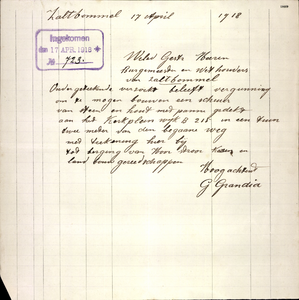 Zaltbommel 17 April 1918
Ingekomen
den 17 APR. 1918
No. 723.
Wel Ed. Heeren
Burgemeester en Wethouders
van Zaltbommel
Ondergetekende verzoekt beleeft vergunning
om te mogen bouwen een schuur
van steen en hout met pannen gedekt
aan het Kerkplein wijk B 218 in een tuin
twee meter van den begane weg
met teekening hier bij
tot berging van Hooi Stroo en
land bouw gereedschappen
Hoogachtend
G Grandia